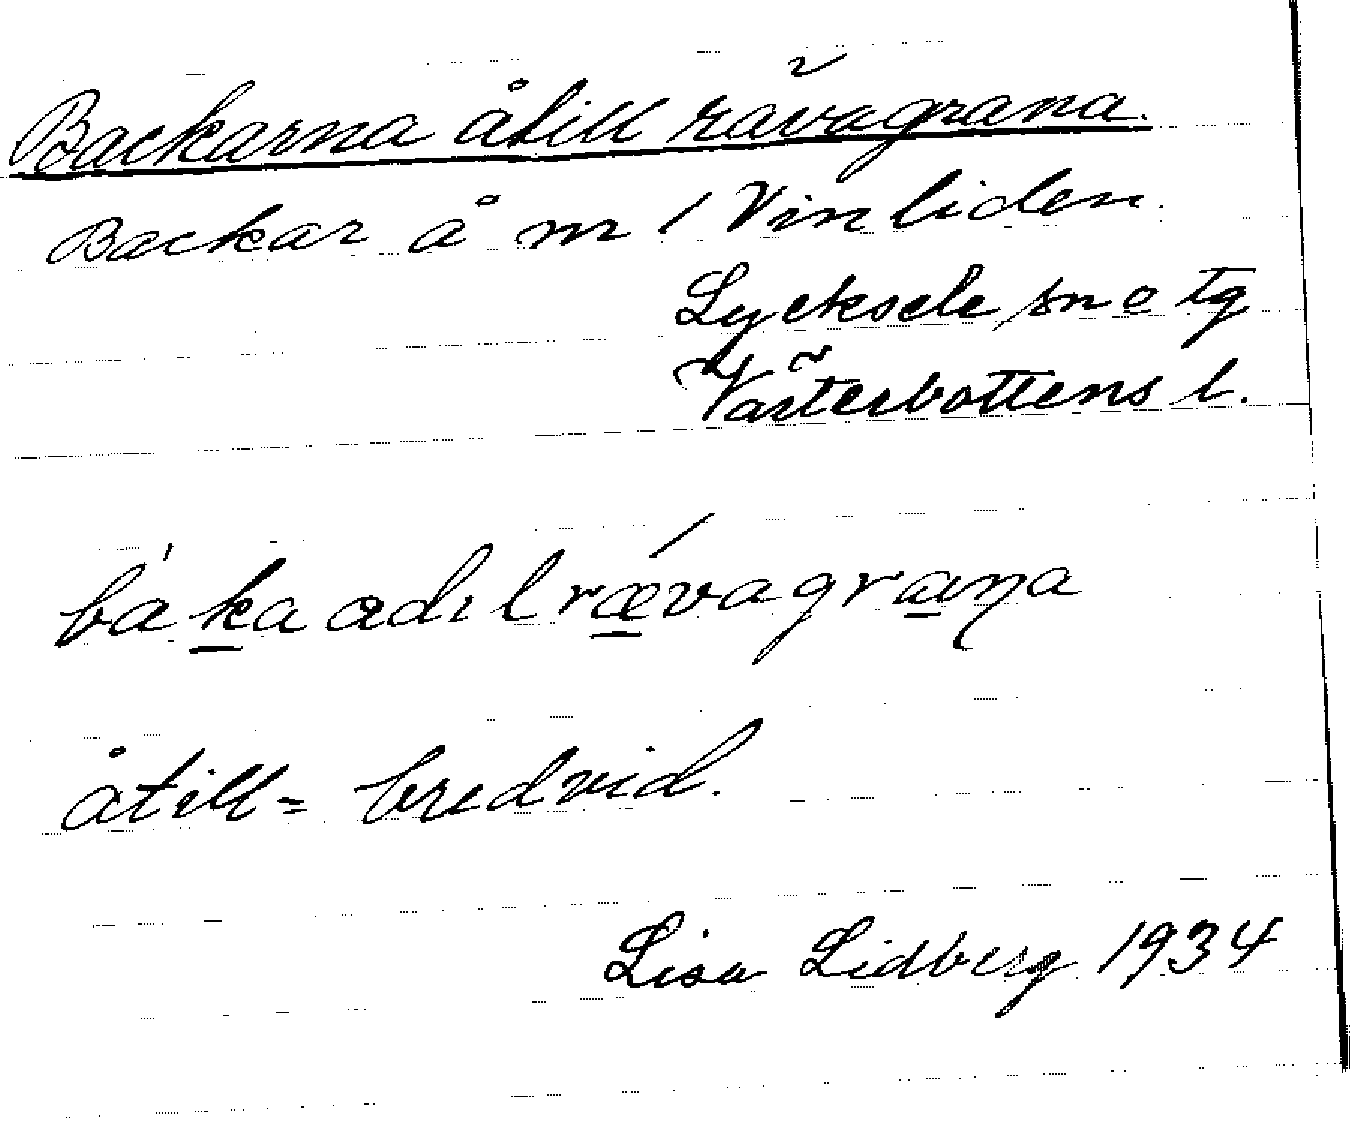 Backarna åtill rävagrana.
Backar å m / Vinliden.
Lycksele sn o tg
Västerbottens l.
bá'ka ædıl rǽvagraṇa
åtill = bredvid.
Lisa Lidberg 1934